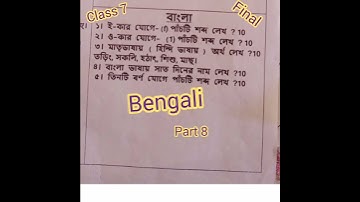 Class 7
Final
বাংলা
১। ই-কার যোগে- (ি) পাঁচটি শব্দ লেখ ?10
২। ও-কার যোগে- (ো) পাঁচটি শব্দ লেখ ?10
৩। মাতৃভাষায় ( হিন্দি ভাষায় ) অর্থ লেখ ?10
তড়িং, সকলি, হঠাৎ, শিশু, মাছ।
৪। বাংলা ভাষায় সাত দিনের নাম লেখ ?10
৫। তিনটি বর্ণ যোগে পাঁচটি শব্দ লেখ ?10
Bengali
Part 8